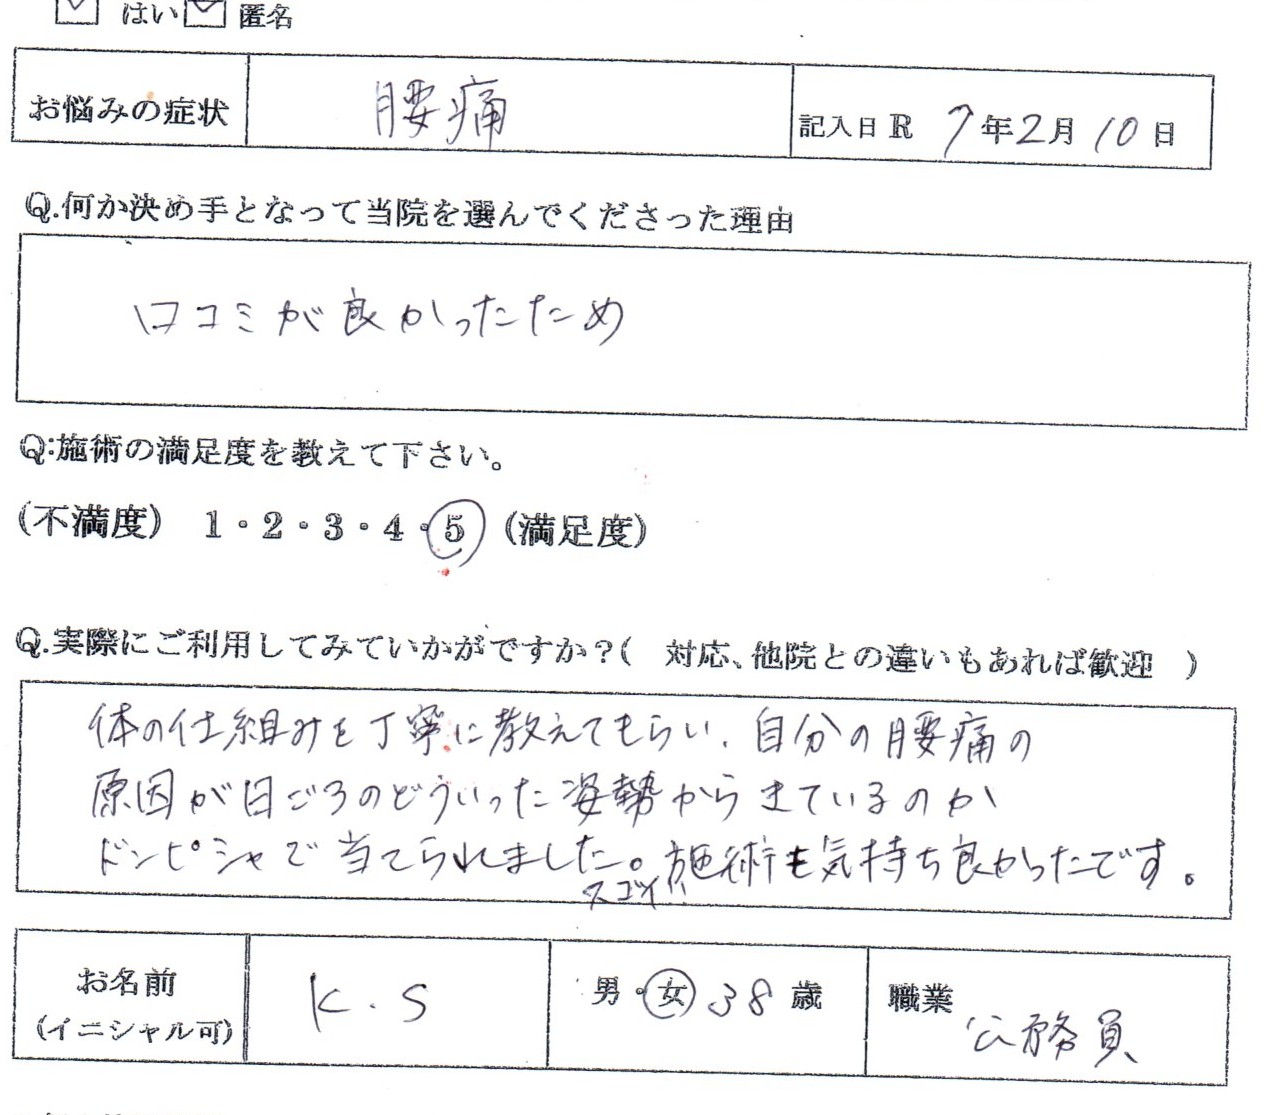 はい 匿名
お悩みの症状 腰痛 記入日 R 7年2月10日
Q.何か決め手となって当院を選んでくださった理由
口コミが良かったため
Q:施術の満足度を教えて下さい。
(不満度) 1・2・3・4・5 (満足度)
Q.実際にご利用してみていかがですか？( 対応、他院との違いもあれば歓迎 )
体の仕組みを丁寧に教えてもらい、自分の腰痛の
原因が日ごろのどういった姿勢からきているのか
ドンピシャで当てられました。施術も気持ち良かったです。
スゴイ!!
お名前 K.S 男・女 38歳 職業
(イニシャル可) 公務員